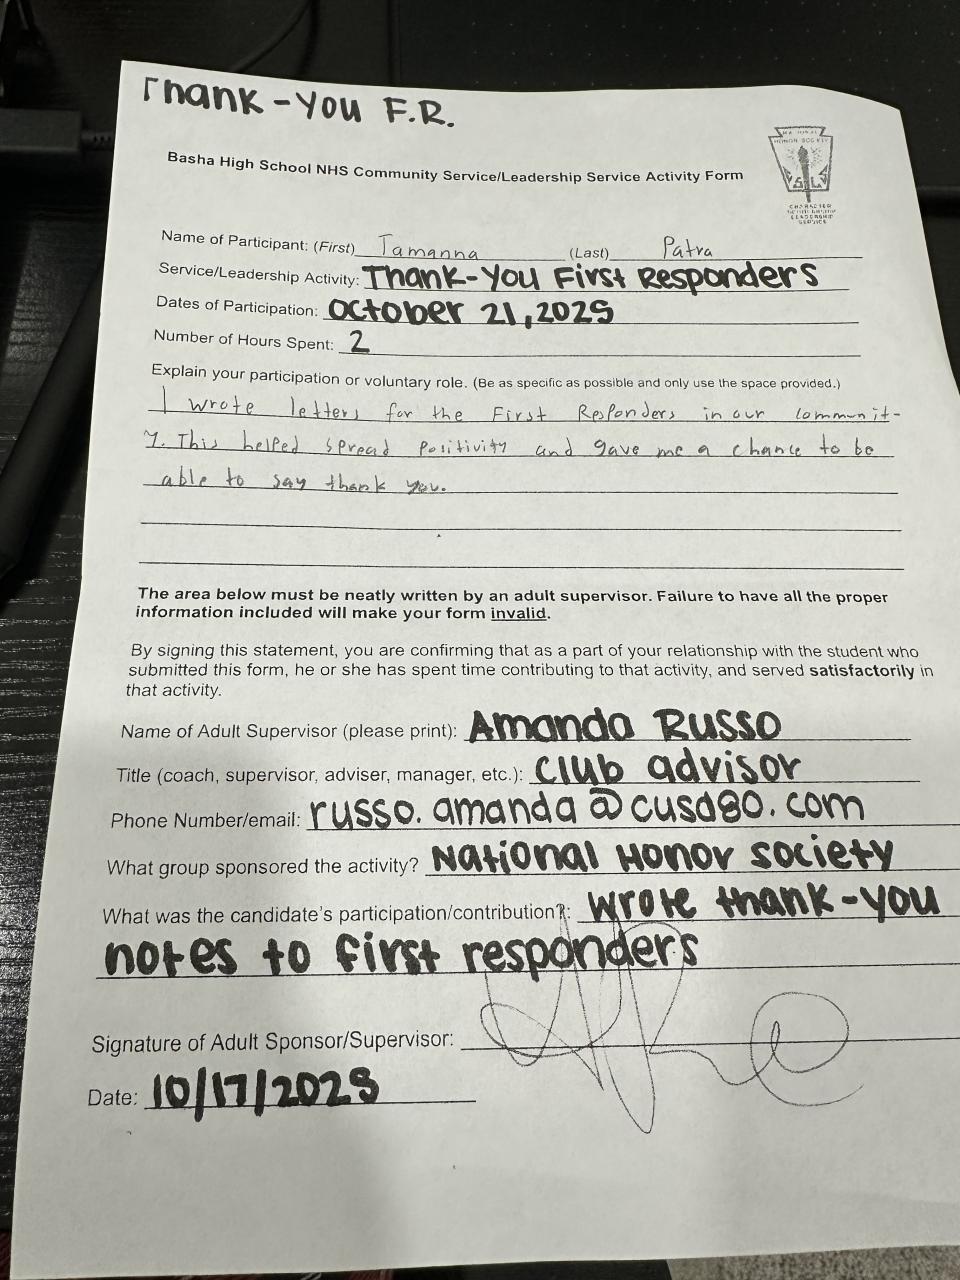 Thank-You F.R.
Basha High School NHS Community Service/Leadership Service Activity Form
NATIONAL
HONOR SOCIETY
S L
CHARACTER
SCHOLARSHIP
LEADERSHIP
SERVICE
Name of Participant: (First) Tamanna (Last) Patra
Service/Leadership Activity: Thank-You First Responders
Dates of Participation: October 21, 2025
Number of Hours Spent: 2
Explain your participation or voluntary role. (Be as specific as possible and only use the space provided.)
I wrote letters for the First Responders in our communit-
y. This helped spread positivity and gave me a chance to be
able to say thank you.
The area below must be neatly written by an adult supervisor. Failure to have all the proper
information included will make your form invalid.
By signing this statement, you are confirming that as a part of your relationship with the student who
submitted this form, he or she has spent time contributing to that activity, and served satisfactorily in
that activity.
Name of Adult Supervisor (please print): Amanda Russo
Title (coach, supervisor, adviser, manager, etc.): Club advisor
Phone Number/email: russo.amanda@cusd80.com
What group sponsored the activity? National Honor Society
What was the candidate's participation/contribution?: wrote thank-you
notes to first responders
Signature of Adult Sponsor/Supervisor:
Date: 10/17/2025